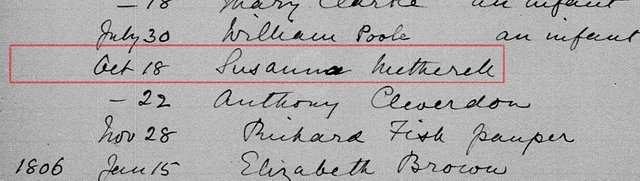 – 18 Mary Clarke an infant
July 30 William Poole an infant
Oct 18 Susanna Netherell
– 22 Anthony Cleverdon
Nov 28 Richard Fish pauper
1806 Jan 15 Elizabeth Brown